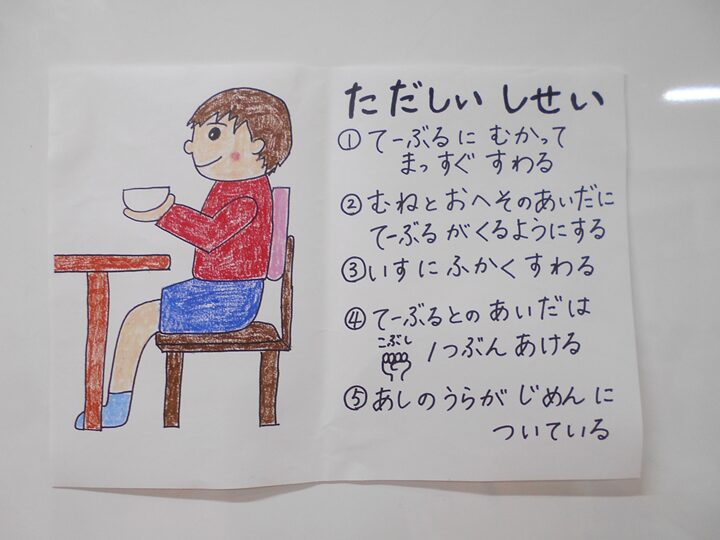 ただしい しせい
① てーぶるに むかって
まっすぐ すわる
② むねとおへそのあいだに
てーぶるがくるようにする
③ いすに ふかく すわる
④ てーぶるとの あいだは
こぶし
1つぶん あける
⑤ あしのうらが じめんに
ついている